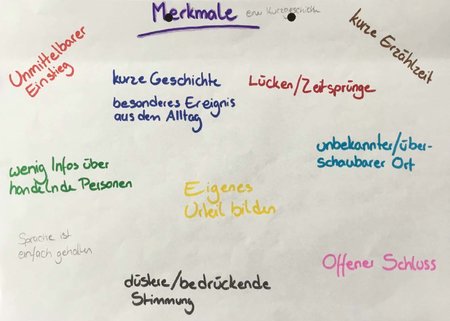 Merkmale einer Kurzgeschichte
Unmittelbarer
Einstieg
kurze Geschichte
besonderes Ereignis
aus dem Alltag
Lücken/Zeitsprünge
kurze Erzählzeit
unbekannter/über-
schaubarer Ort
wenig Infos über
handelnde Personen
Eigenes
Urteil bilden
Sprache ist
einfach gehalten
düstere/bedrückende
Stimmung
Offener Schluss